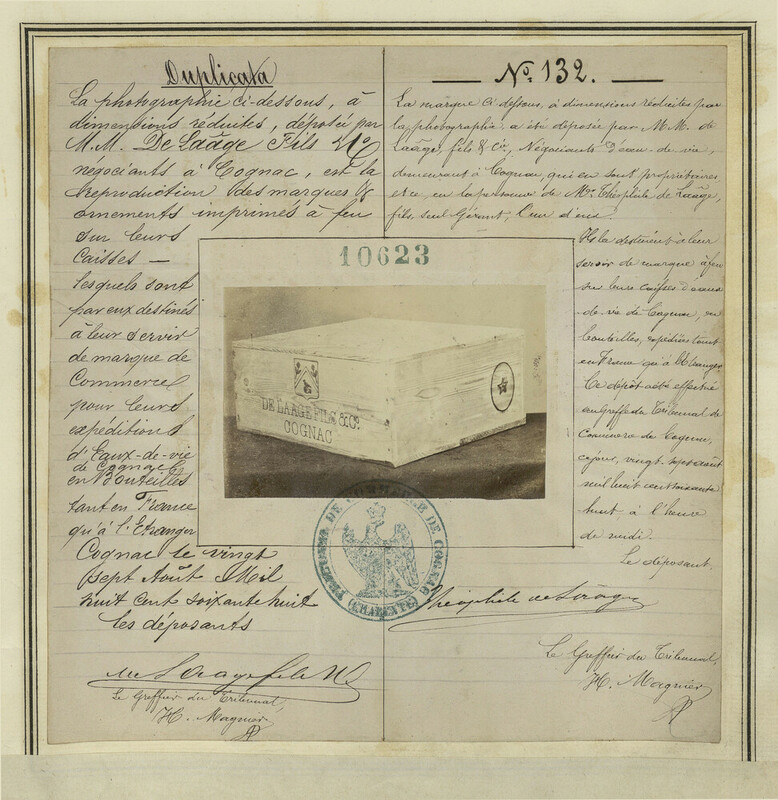 Duplicata
La photographie ci-dessous, à
dimensions réduites, déposée par
M.M. De Laage Fils & Co
négociants à Cognac, est la
Reproduction des marques &
ornements imprimés à feu
sur leurs
Caisses —
lesquels sont
par eux destinés
à leur servir
de marque de
Commerce
pour leurs
expéditions
d'Eaux-de-vie
de Cognac
en Bouteilles
tant en France
qu'à l'Etranger
Cognac le vingt
sept Août Mil
huit cent soixante huit
Les déposants
de Laage fils &
Le Greffier du Tribunal,
H. Magnier
— No. 132. —
La marque ci-dessous, à dimensions réduites par
la photographie, a été déposée par M.M. de
Laâge, fils & Cie, Négociants d'eau-de-vie,
demeurant à Cognac, qui en sont propriétaires,
et ce, en la personne de Mr. Théophile de Laâge,
fils, seul Gérant, l'un d'eux.
Ils la destinent à leur
servir de marque à feu
sur leurs caisses d'eaux-
de-vie de Cognac, en
bouteilles, expédiées tant
en France qu'à l'Etranger.
Ce dépôt a été effectué
au Greffe du Tribunal de
Commerce de Cognac,
ce jour, vingt-sept août
mil huit cent soixante
huit à l'heure
de midi.
Le déposant.
Théophile de Laâge
Le Greffier du Tribunal,
H. Magnier
10623
DE LAAGE FILS & Co.
COGNAC
TRIBUNAL DE COMMERCE DE COGNAC
(CHARENTE)